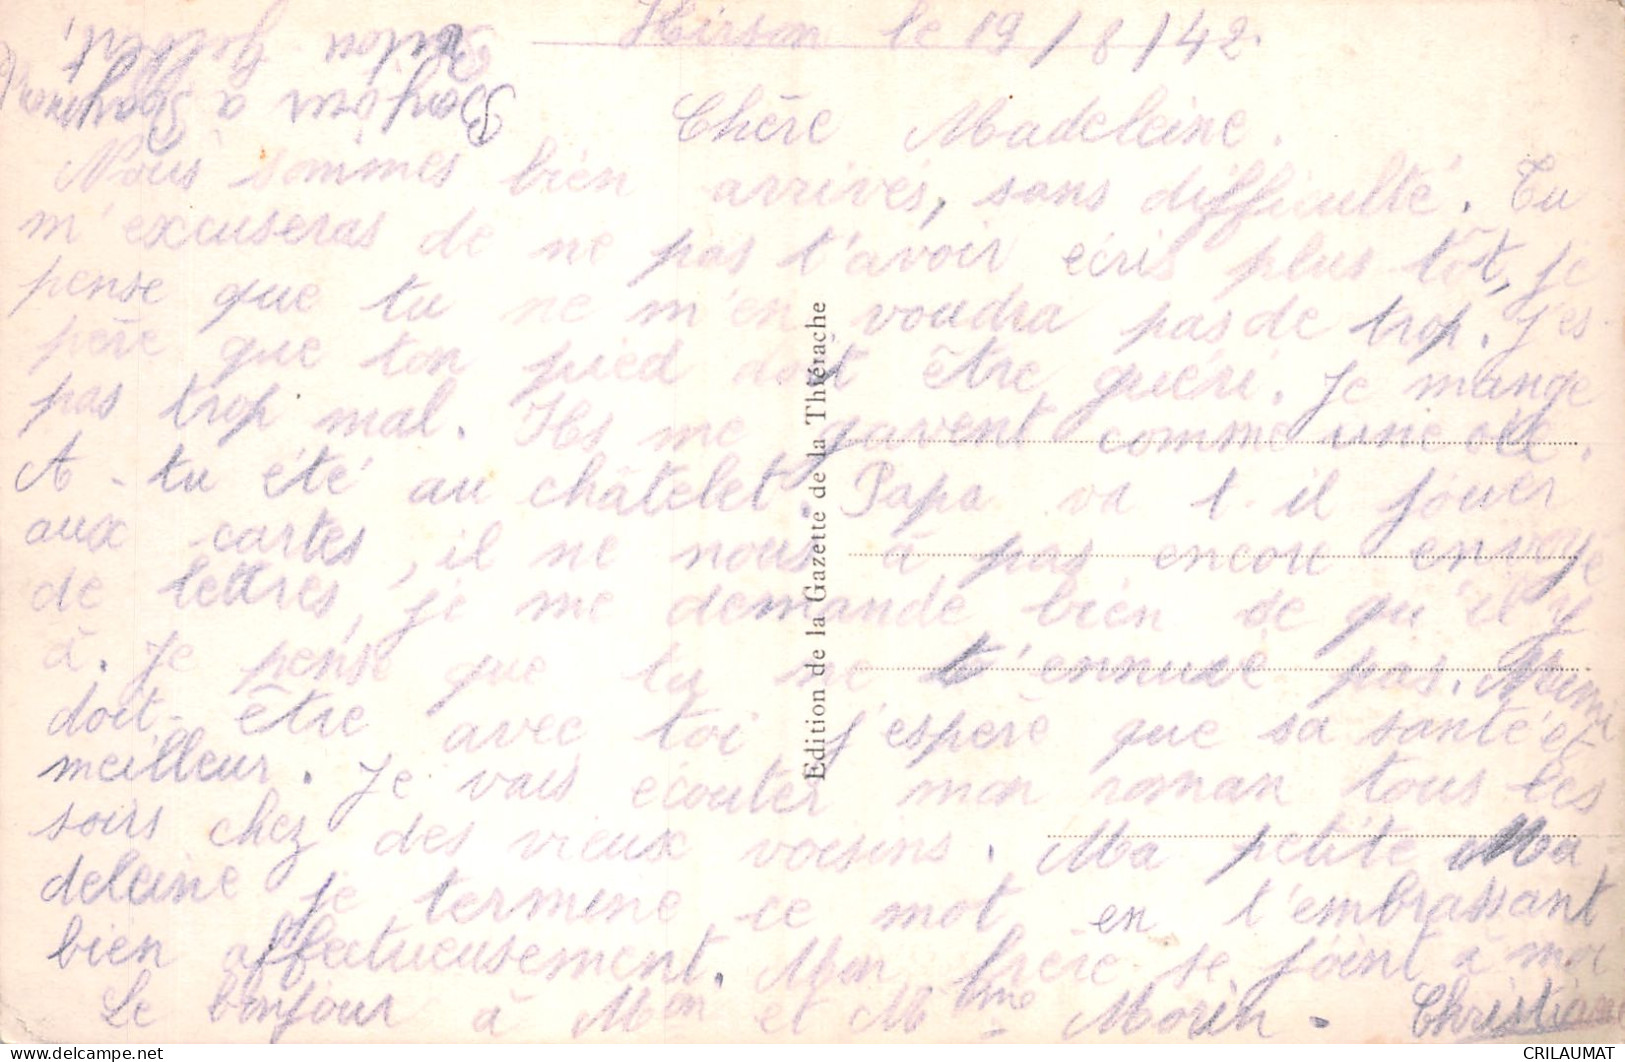 Hirson le 19/8/42.
Chère Madeleine.
Nous sommes bien arrivés, sans difficulté. Tu
m'excuseras de ne pas t'avoir écris plus tôt, je
pense que tu ne m'en voudra pas de trop. J'es-
père que ton pied doit être guéri. Je mange
pas trop mal. Ils me gavent comme une oie.
A-tu été au châtelet. Papa va t-il jouer
aux cartes, il ne nous à pas encore envoyé
de lettres, je me demande bien de qu'il y
à. Je pense que tu ne t'ennuie pas. Mimi
doit-être avec toi j'espère que sa santé et
meilleur. Je vais écouter mon roman tous les
soirs chez des vieux voisins. Ma petite Ma
deleine je termine ce mot en t'embrassant
bien affectueusement. Mon frère se joint à moi
Le bonjour à Mon et Mme Morin - Christiane
Bonjour à
Gilbert,
Edition de la Gazette de la Thiérache
CRILAUMAT